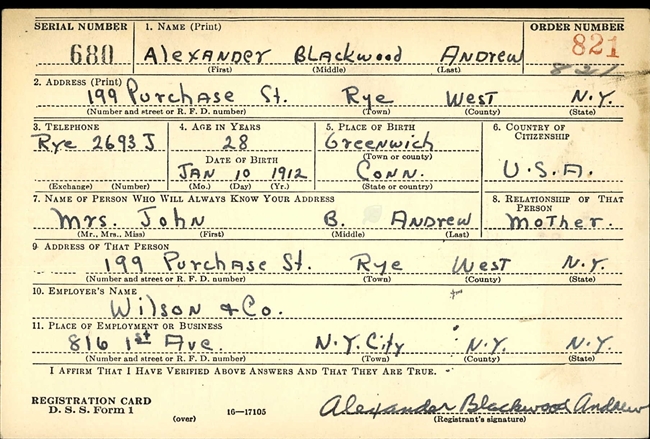 SERIAL NUMBER 1. NAME (Print) ORDER NUMBER
680 Alexander Blackwood Andrew 821
(First) (Middle) (Last) 821
2. ADDRESS (Print)
199 Purchase St. Rye West N.Y.
(Number and street or R. F. D. number) (Town) (County) (State)
3. TELEPHONE 4. AGE IN YEARS 5. PLACE OF BIRTH 6. COUNTRY OF CITIZENSHIP
Rye 2693 J 28 Greenwich
DATE OF BIRTH (Town or county)
JAN 10 1912 Conn. U.S.A.
(Exchange) (Number) (Mo.) (Day) (Yr.) (State or country)
7. NAME OF PERSON WHO WILL ALWAYS KNOW YOUR ADDRESS 8. RELATIONSHIP OF THAT PERSON
Mrs. John B. Andrew Mother.
(Mr., Mrs., Miss) (First) (Middle) (Last)
9. ADDRESS OF THAT PERSON
199 Purchase St. Rye West N.Y.
(Number and street or R. F. D. number) (Town) (County) (State)
10. EMPLOYER'S NAME
Wilson & Co.
11. PLACE OF EMPLOYMENT OR BUSINESS
816 1st Ave. N.Y. City N.Y. N.Y.
(Number and street or R. F. D. number) (Town) (County) (State)
I AFFIRM THAT I HAVE VERIFIED ABOVE ANSWERS AND THAT THEY ARE TRUE.
REGISTRATION CARD
D. S. S. Form 1 (over) 16—17105 Alexander Blackwood Andrew
(Registrant's signature)